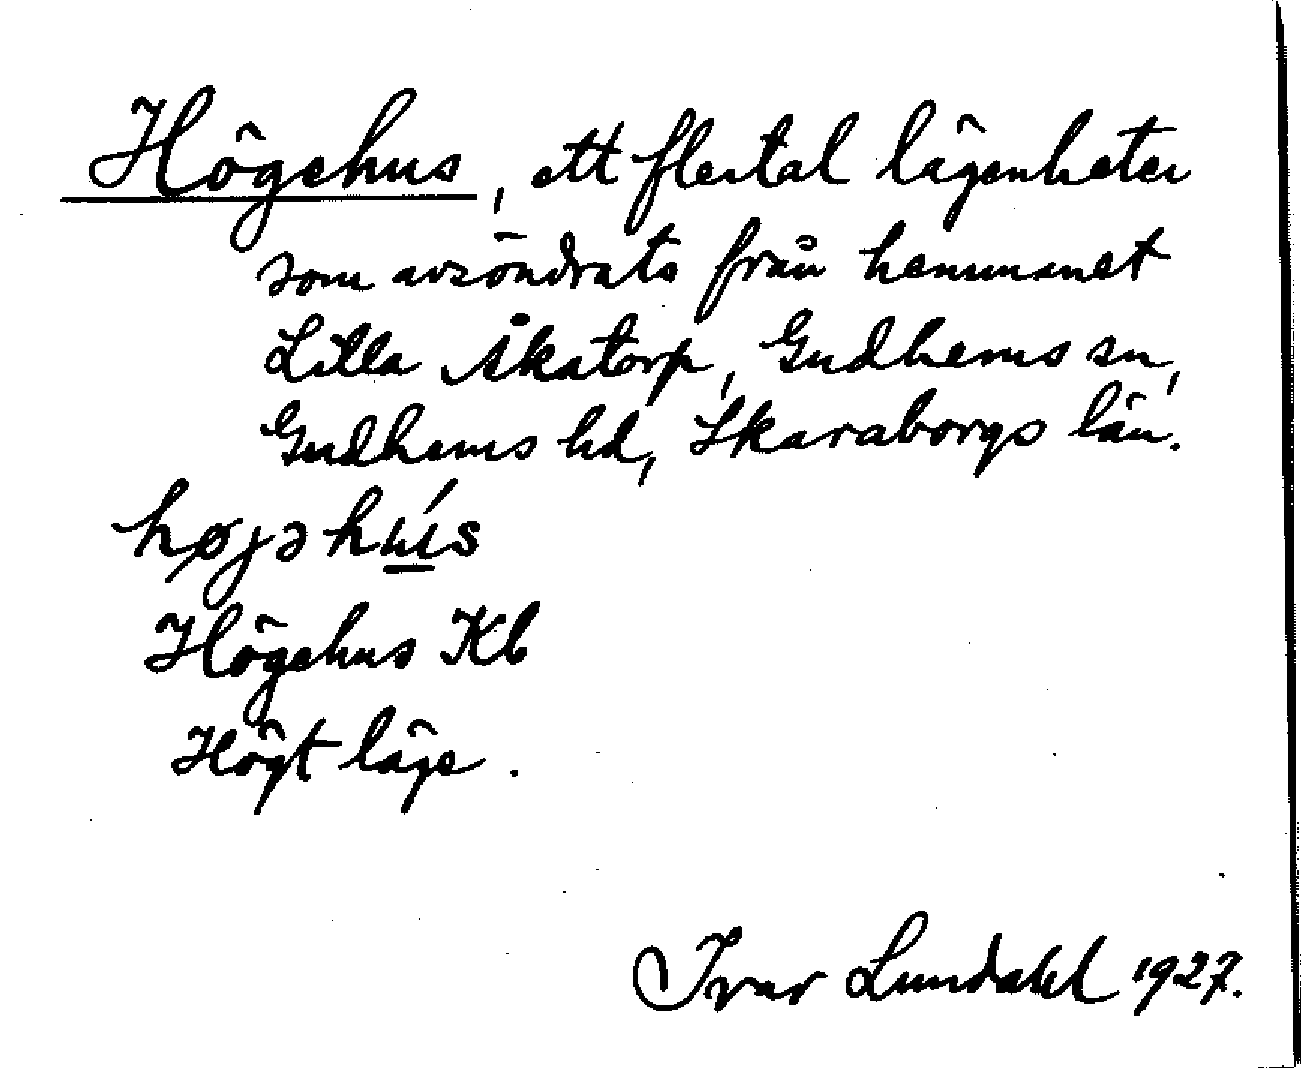 Högehus, ett flertal lägenheter
som avsöndrats från hemmanet
Lilla Åkatorp, Gudhems sn,
Gudhems hd, Skaraborgs län.
højəhu̲ís
Högehus Kb
Högt läge.
Ivar Lundahl 1927.